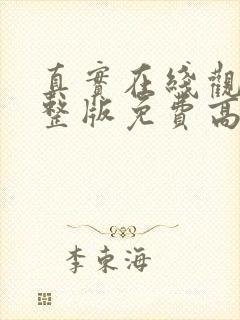 真實在綫觀
整版免費高
李東海